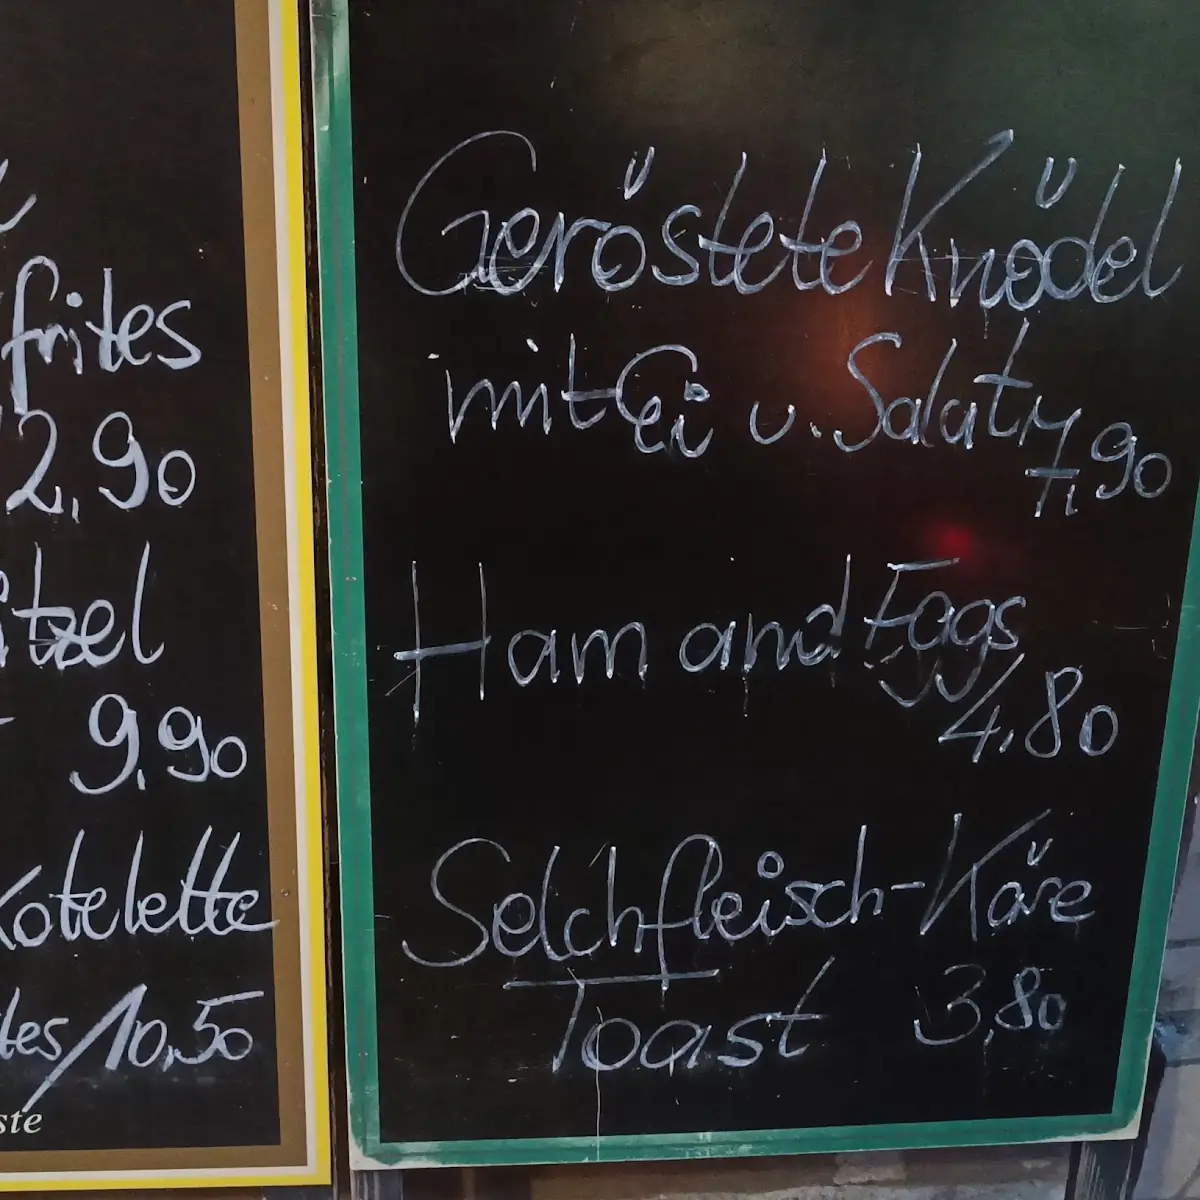 frites
12,90
itzel
9,90
Kotelette
ites/10,50
ste
Geröstete Knödel
mit Ei u. Salat
7,90
Ham and Eggs
4,80
Selchfleisch-Käse
Toast 3,80